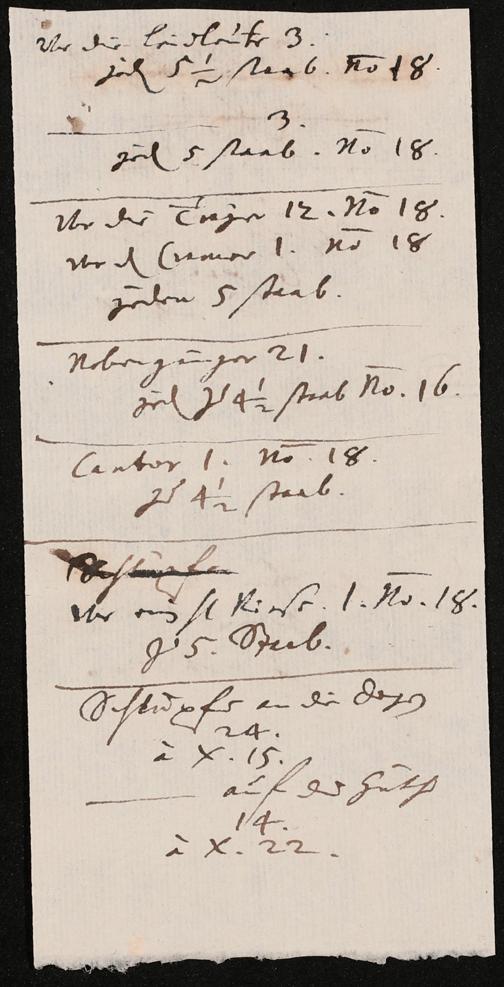 Vor die Leidleüte 3.
jed 5 1/2 staab. No 18.
3.
jed 5 staab. No 18.
Vor die Träger 12. No 18.
Vor d Cramer 1. No 18
jeden 5 staab.
Nebengänger 21.
jed 4 1/2 staab No. 16.
Cantor 1. No. 18.
4 1/2 staab.
Vor 1. No. 18.
5. Staab.
Schlüpfe an die degen
24.
à X. 15.
auf die Hüth
14.
à X. 22.